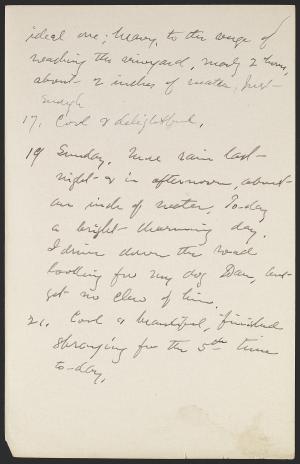 ideal one; heavy, to the verge of
reaching the vineyard, nearly 2 hours,
about 2 inches of water. Just
enough
17. Cool & delightful.
19 Sunday. More rain last
night & in afternoon, about
an inch of water. To-day
a bright charming day.
I drive down the road
looking for my dog Dan, but
get no clew of him.
21. Cool & beautiful, finished
spraying for the 5th time
to-day.